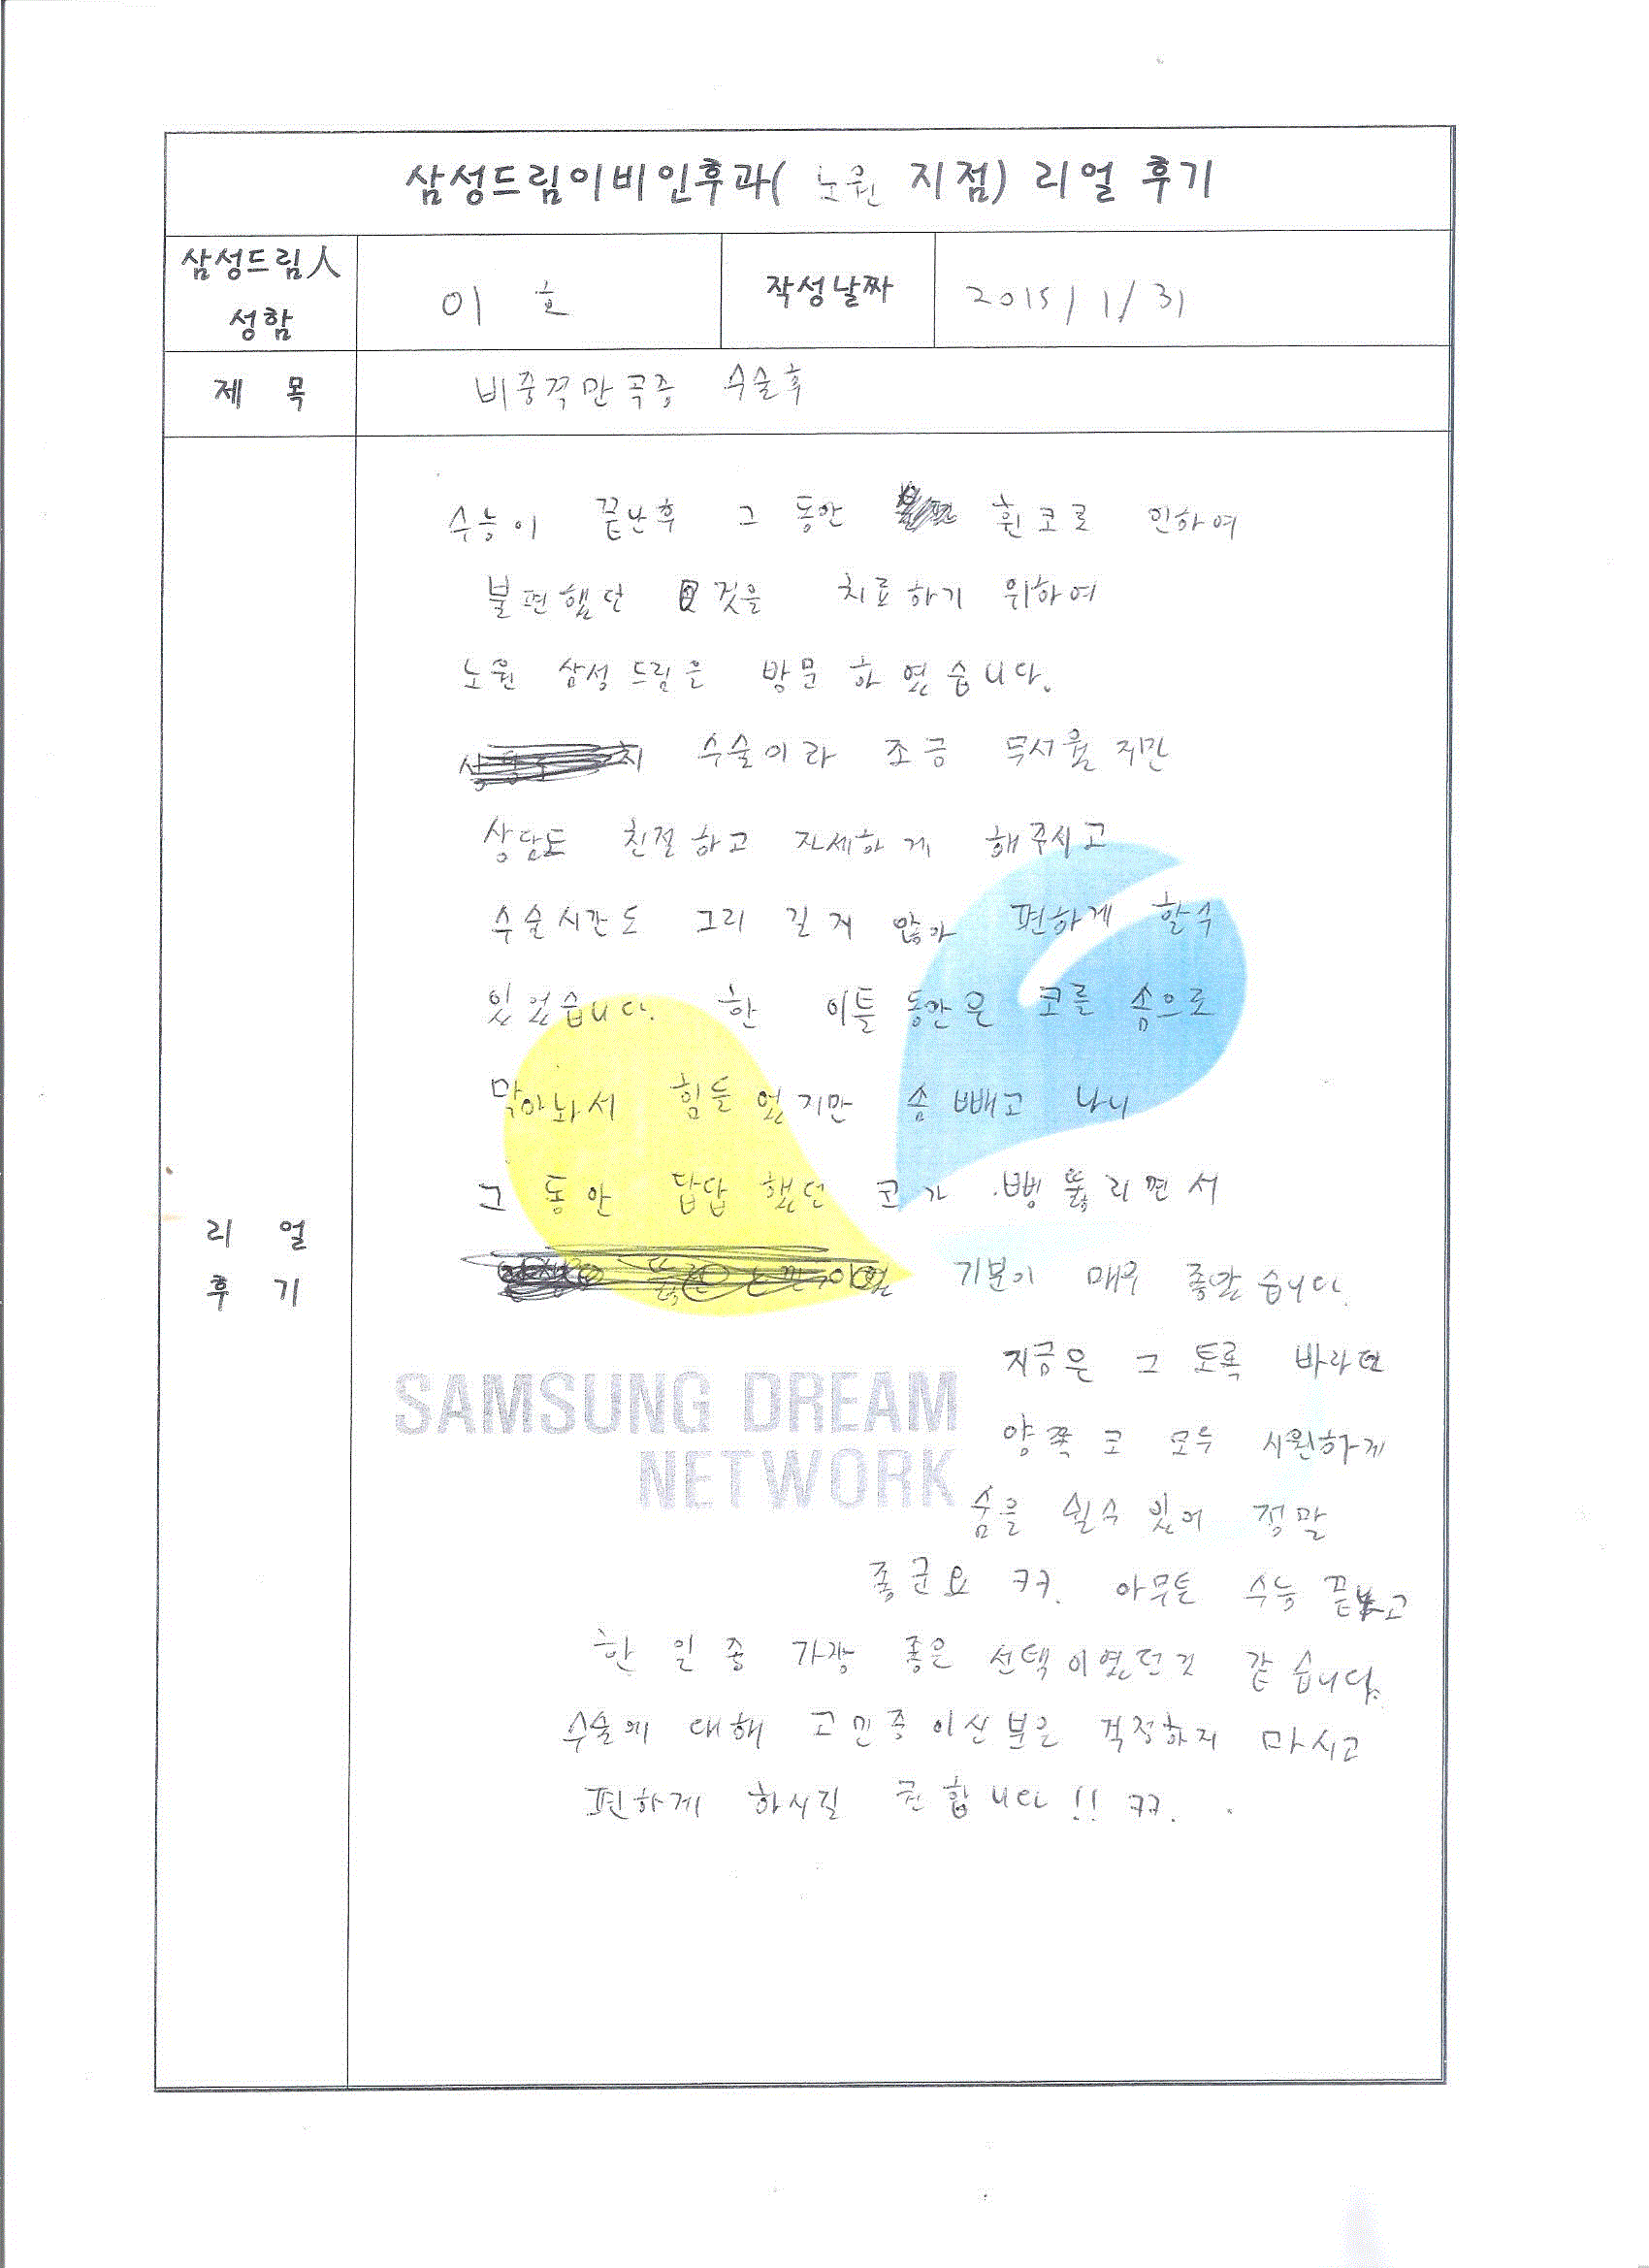 삼성드림이비인후과( 노원 지점) 리얼 후기
삼성드림人
성함
이 호
작성날짜
2015/1/31
제 목
비중격만곡증 수술후
리 얼
후 기
수능이 끝난후 그 동안 휜코로 인하여
불편했던 것을 치료하기 위하여
노원 삼성드림을 방문 하였습니다.
수술이라 조금 무서웠지만
상담도 친절하고 자세하게 해주시고
수술시간도 그리 길지 않아 편하게 할수
있었습니다. 한 이틀 동안은 코를 솜으로
막아놔서 힘들었지만 솜 빼고 나니
그 동안 답답했던 코가 뻥 뚫리면서
기분이 매우 좋았습니다.
지금은 그 토록 바라던
양쪽 코 모두 시원하게
숨을 쉴수 있어 정말
좋군요 ㅋㅋ. 아무튼 수능 끝나고
한 일 중 가장 좋은 선택이였던것 같습니다.
수술에 대해 고민중이신 분은 걱정하지 마시고
편하게 하시길 권합니다!! ㅋㅋ.
SAMSUNG DREAM
NETWORK